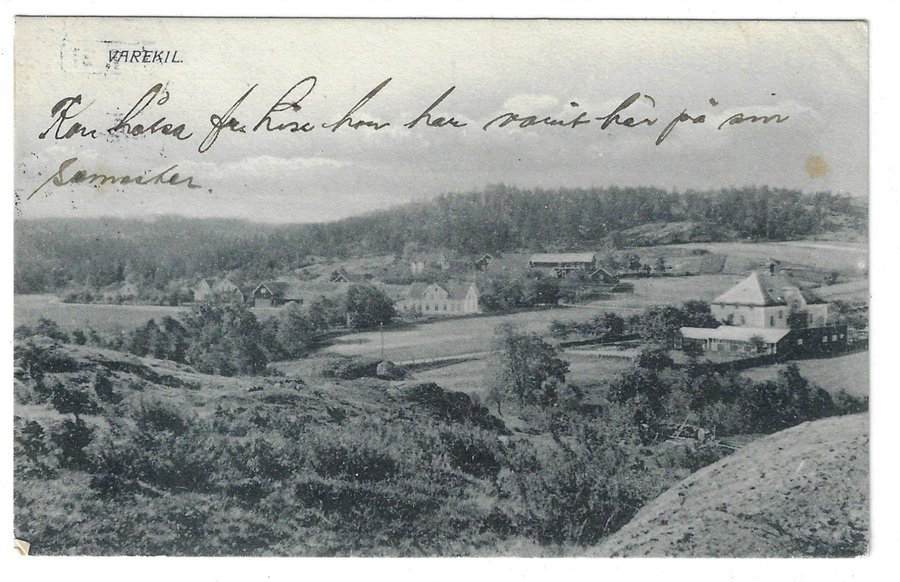 VAREKIL.
Kan hälsa från hon har varit här på sin
semester.